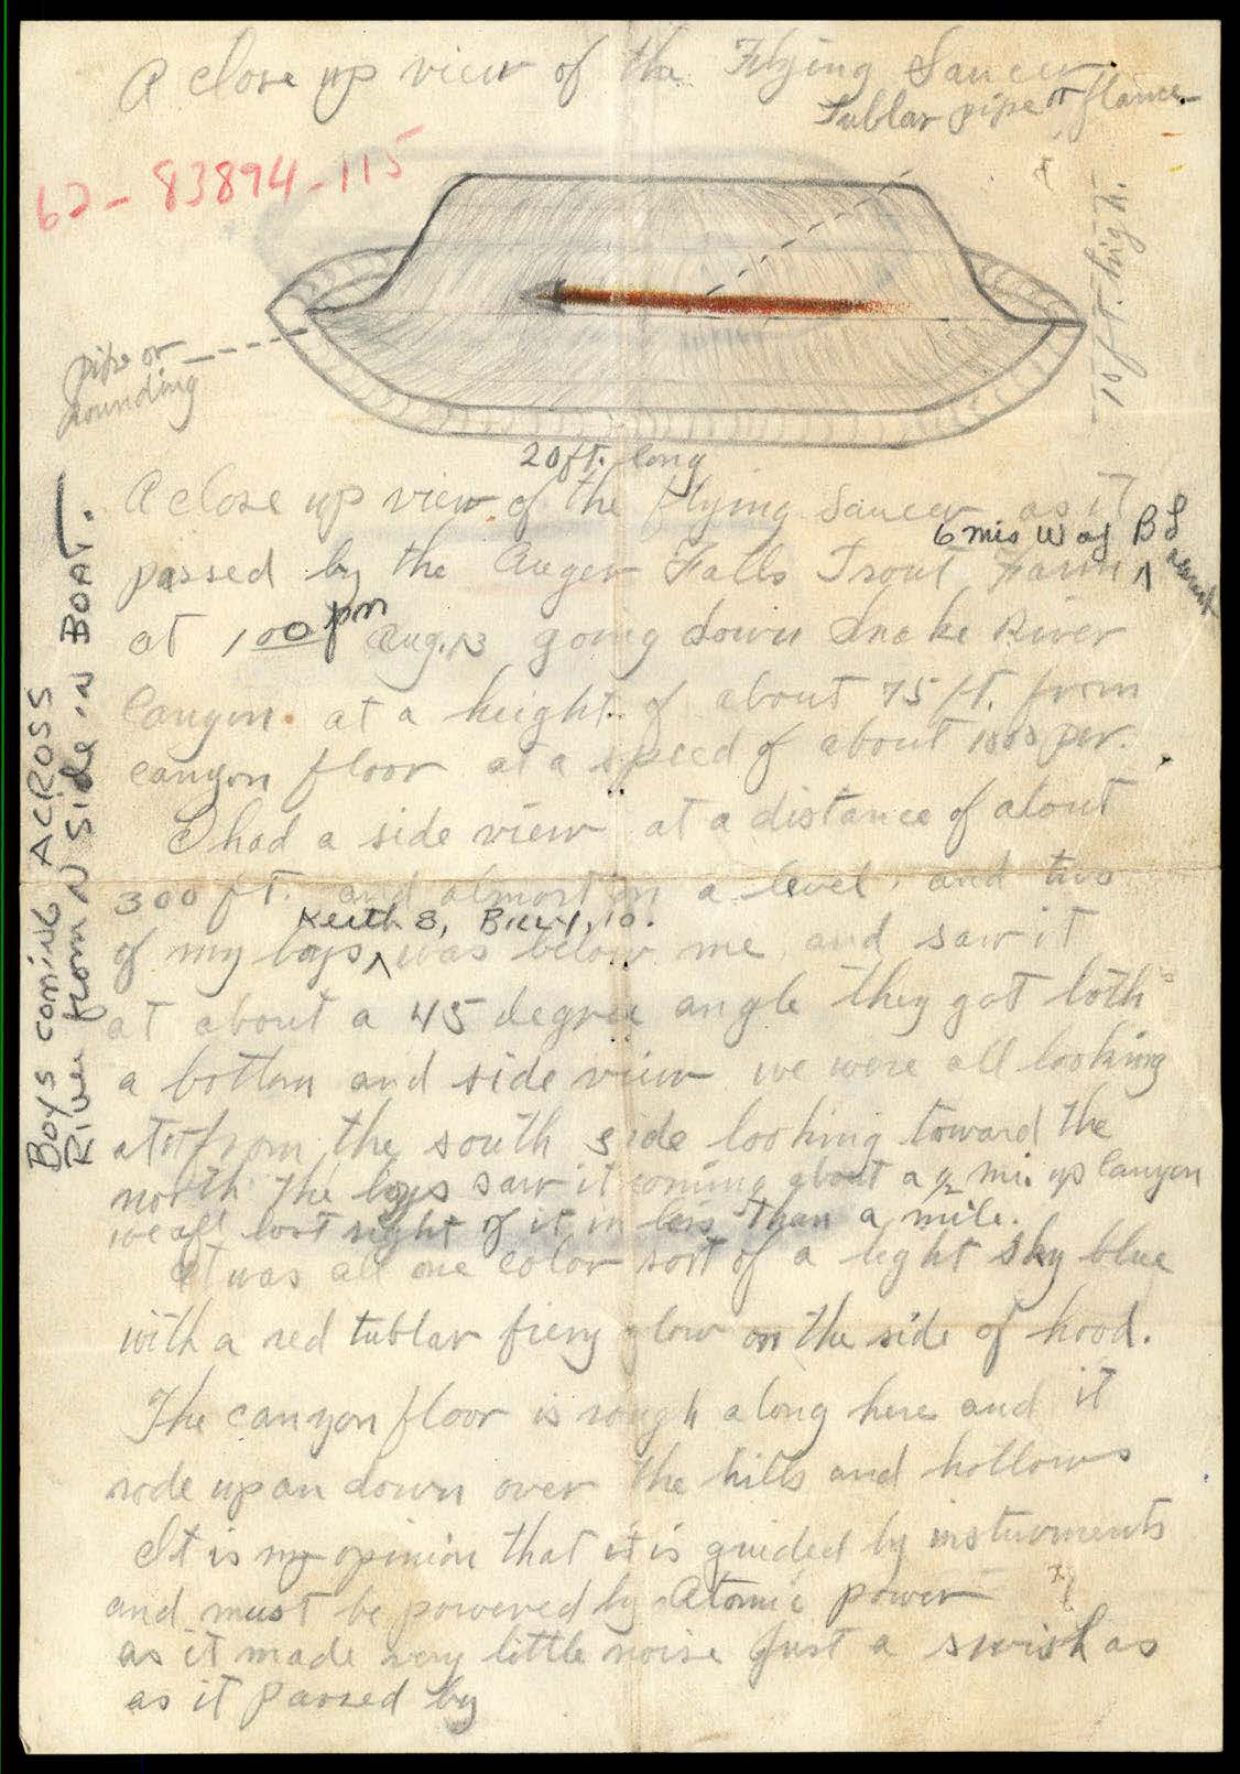 A close up view of the Flying Saucer.
Tublar pipe or flame
62-83894-115
10 ft. high.
pipe or
rounding
20 ft. long
A close up view of the Flying Saucer as it
6 mis W of BL
passed by the Auger Falls Trout Farm
at 1 00 pm Aug. 13 going down Snake River
Canyon. at a height of about 75 ft. from
canyon floor at a speed of about 1000 per.
I had a side view at a distance of about
300 ft. and almost on a level. and two
Keith 8, Billy, 10.
of my boys, was below me and saw it
at about a 45 degree angle they got both
a bottom and side view we were all looking
at it from the south side looking toward the
north The boys saw it coming about a ½ mi. up Canyon
we all lost sight of it in less than a mile.
It was all one color sort of a light sky blue
with a red tublar fiery glow on the side of hood.
The canyon floor is rough along here and it
rode up an down over the hills and hollows
It is my opinion that it is guided by insturments
and must be powered by Atomic power
as it made very little noise Just a swish as
as it passed by
BOYS COMING ACROSS
River from N Side in BOAT.